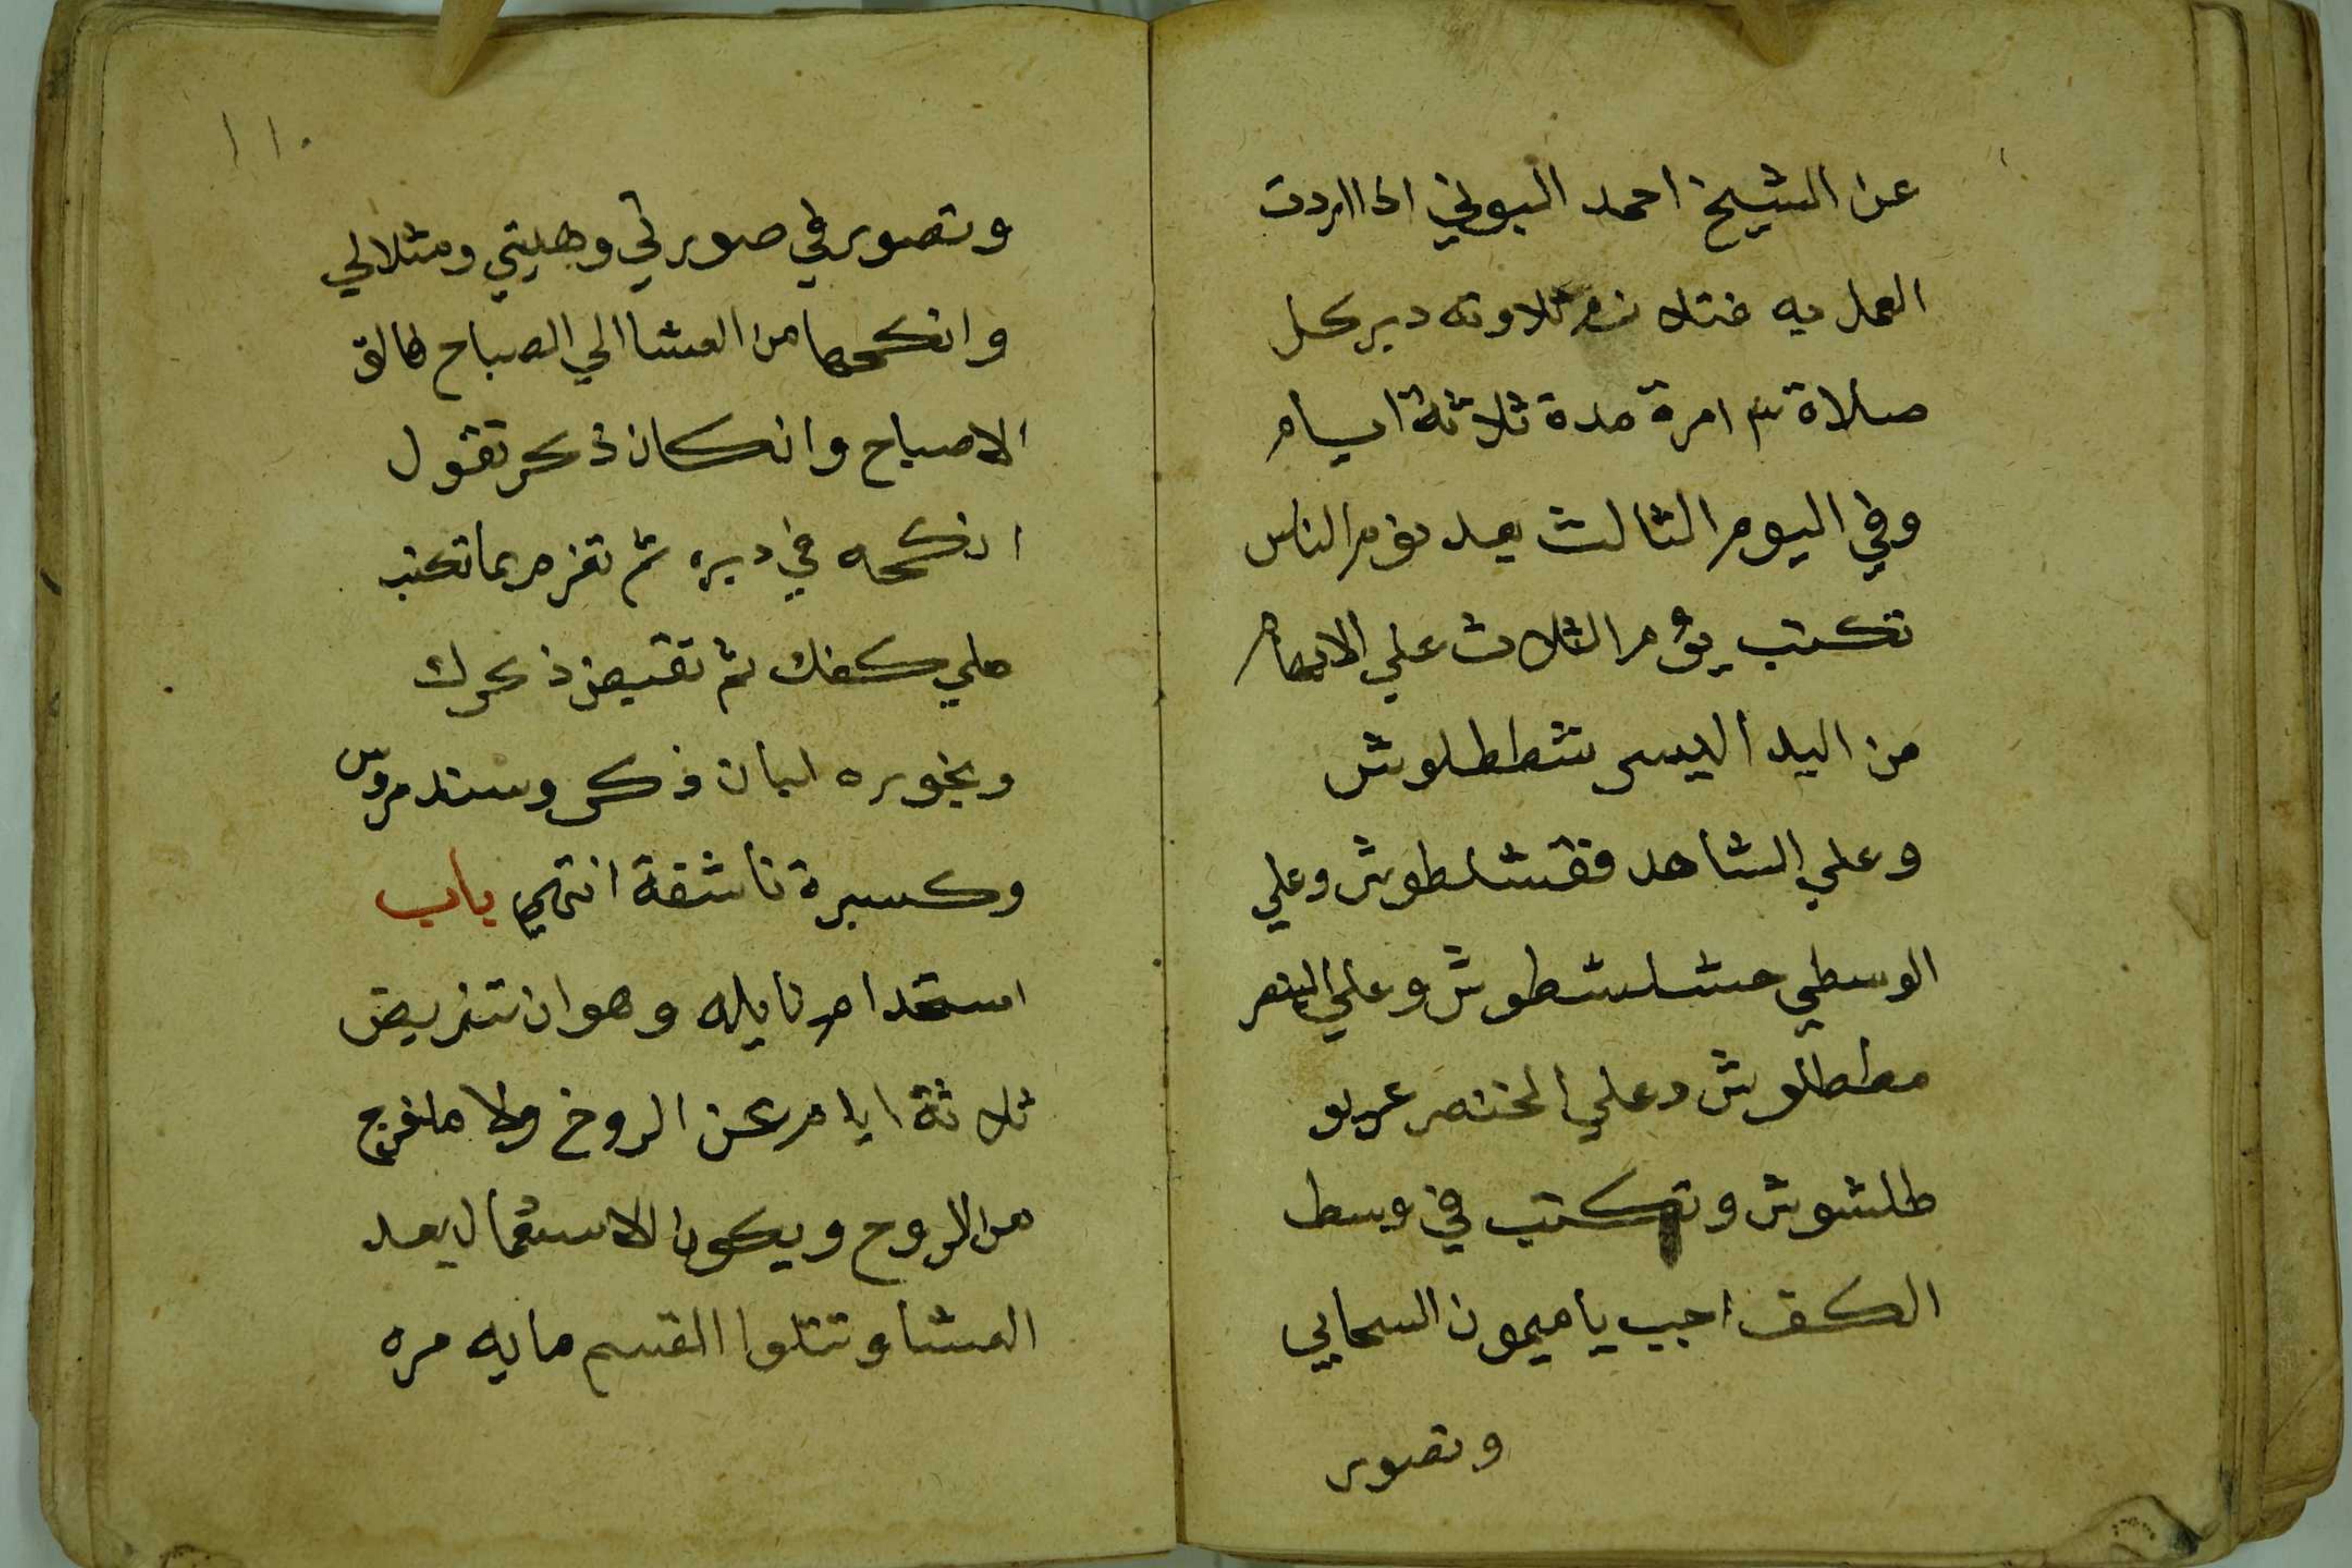 عن الشيخ احمد البوني اذا اردت
العمل به فتلازم تلاوته دبر كل
صلاة مرة مدة ثلاثة ايام
وفي اليوم الثالث بعد نوم الناس
تكتب يوم الثلاث علي الابهام
من اليد اليسر شططلوش
وعلي الشاهد فقشلطوش وعلي
الوسطي حشلشطوش وعلي البنصر
مططلوش وعلي الخنصر
طلشوش وتكتب في وسط
الكف اجب يا ميمون السحابي
وتصور
١١٠
وتصور في صورتي وهيتي ومثلالي
وانكحها من العشا الي الصباح فالق
الاصباح وانكان ذكر تقول
انكحه في دبره ثم تعزم بما تكتب
علي كفك ثم تقبض ذكرك
وبخوره لبان ذكر وسندروس
وكسبرة ناشفة انتهي باب
استخدام نايله وهو ان تتريض
ثلاثة ايام عن الروخ ولا ماخرج
من الروح ويكون الاستعمال بعد
العشا وتتلوا القسم مايه مره